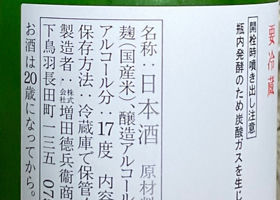 要冷蔵
開栓時噴き出し注意
瓶内発酵のため炭酸ガスを生じ
名称：日本酒 原材料
麹(国産米)、醸造アルコール
アルコール分：17度 内容
保存方法：冷蔵庫で保管
製造者：株式会社増田德兵衞商
下鳥羽長田町一三五 07
お酒は20歳になってから。